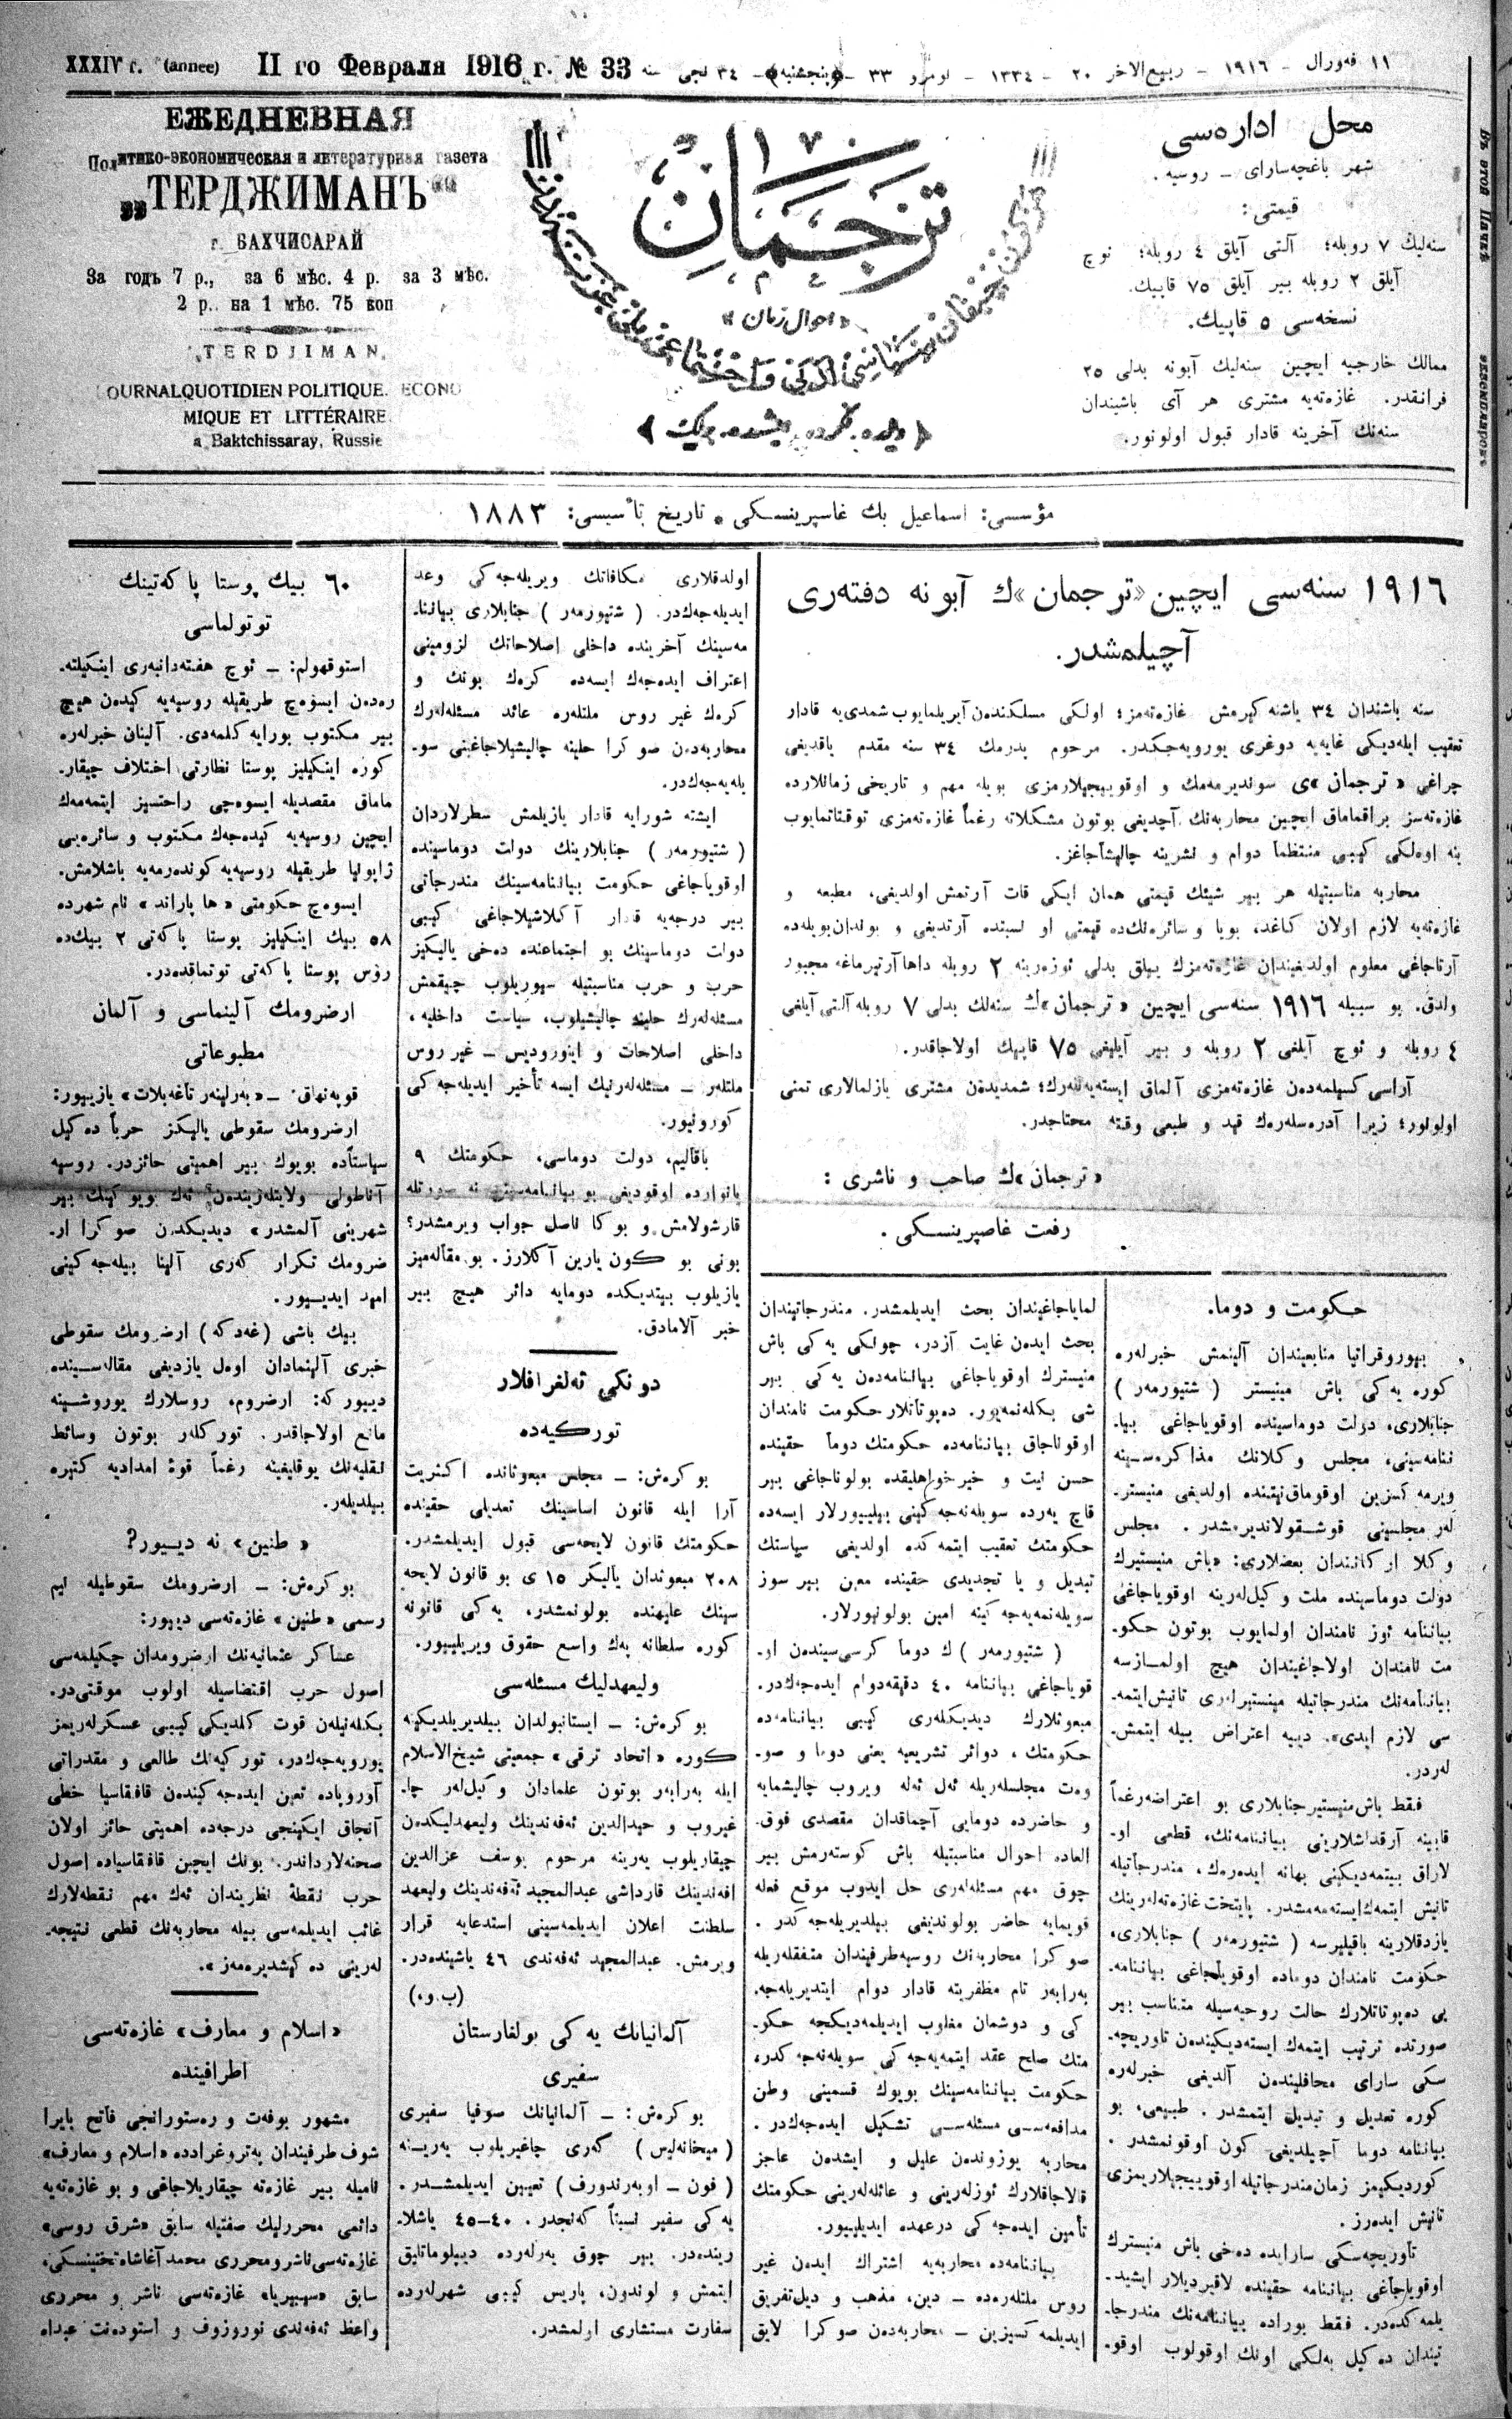 XXXIV г. (annee) 11 го Февраля 1916 г. № 33
١١ فەورال - ١٩١٦ - ربیع‌الاخر ٢٠ - ١٣٣٤ - نومرو ٣٣ -(پنجشنبه)- ٣٤ نجی سنه
ЕЖЕДНЕВНАЯ
Политико-экономическая и литературная газета
„ТЕРДЖИМАНЪ“
г. БАХЧИСАРАЙ
За годъ 7 р., за 6 мѣс. 4 р. за 3 мѣс.
2 р. на 1 мѣс. 75 коп
„TERDJIMAN„
OURNALQUOTIDIEN POLITIQUE. ECONO
MIQUE ET LITTÉRAIRE.
a Baktchissaray, Russie
ترجمان
«احوال زمان»
«دیلده، فکرده، ایشده، برلك»
محل اداره‌سی
شهر باغچه‌سارای - روسیه.
قیمتی:
سنه‌لیك ٧ روبله؛ آلتی آیلق ٤ روبله؛ ئوچ
آیلق ٢ روبله بیر آیلق ٧٥ قاپیك.
نسخه‌سی ٥ قاپیك.
ممالك خارجیه ایچین سنه‌لیك آبونه بدلی ٢٥
فرانقدر. غازه‌ته‌یه مشتری هر آی باشیندان
سنه‌نك آخرینه قادار قبول اولونور.
مؤسسی: اسماعیل بك غاسپرینسکی. تاریخ تأسیسی: ١٨٨٣
١٩١٦ سنه‌سی ایچین «ترجمان»ك آبونه دفته‌ری
آچیلمشدر.
سنه باشندان ٣٤ یاشنه کیرمش غازه‌ته‌مز؛ اولکی مسلکندەن آیریلمایوب شمدی‌یه قادار
تعقیب ایله‌دیکی غایه‌یه دوغری یورویه‌جکدر. مرحوم پدرمك ٣٤ سنه مقدم یاقدیغی
چراغی «ترجمان»ی سوندیرمه‌مك و اوقوییجیلارمزی بویله مهم و تاریخی زمانلارده
غازه‌ته‌سز براقماماق ایچین محاربه‌نك آچدیغی بوتون مشکلاته رغماً غازه‌ته‌مزی توقتاتمایوب
ینه اوه‌لکی کیبی منتظماً دوام و نشرینه چالیشاجاغز.
محاربه مناسبتیله هر بیر شیئك قیمتی همان ایکی قات آرتمش اولدیغی، مطبعه و
غازه‌ته‌یه لازم اولان کاغد، بویا و سائره‌نك‌ده قیمتی او نسبتده آرتدیغی و بوندان‌بویله‌ده
آرتاجاغی معلوم اولدیغیندان غازه‌ته‌مزك ییلق بدلی ئوزه‌رینه ٢ روبله داها آرتیرماغه مجبور
ولدق. بو سببله ١٩١٦ سنه‌سی ایچین «ترجمان»ك سنه‌لك بدلی ٧ روبله آلتی آیلغی
٤ روبله و ئوچ آیلغی ٢ روبله و بیر آیلیغی ٧٥ قاپیك اولاجاقدر.
آراسی کسیلمه‌دەن غازه‌ته‌مزی آلماق ایسته‌یه‌نله‌رك؛ شمدیدەن مشتری یازلمالاری تمنی
اولولور؛ زیرا آدره‌سله‌رەك قید و طبعی وقته محتاجدر.
«ترجمان»ك صاحب و ناشری:
رفعت غاصپرینسکی.
حکومت و دوما.
بیوروقراتیا منابعیندان آلینمش خبرله‌ره
کوره یه‌کی باش مینیستر (شتیورمه‌ر)
جنابلاری، دولت دوماسینده اوقویاجاغی بیا-
ننامه‌سینی، مجلس وکلانك مذاکره‌سینه
ویرمه کسزین اوقوماق‌نیتنده اولدیغی منیستر-
له‌ر مجلسینی قوشقولاندیرمشدر. مجلس
وکلا ارکانندان بعضلاری: «باش منیستیرك
دولت دوماسینده ملت وکیل‌له‌رینه اوقویاجاغی
بیاننامه ئوز نامندان اولمایوب بوتون حکو-
مت نامندان اولاجاغیندان هیچ اولمازسه
بیاننامه‌نك مندرجاتیله مینستیرله‌ری تانیش‌ایتمه-
سی لازم ایدی». دییه اعتراض بیله ایتمش-
له‌ردر.
فقط باش‌منیستیرجنابلاری بو اعتراضه‌رغماً
قابینه آرقداشلارینی بیاننامه‌نك، قطعی او-
لاراق بیتمه‌دیکینی بهانه ایده‌رەك، مندرجاتیله
تانیش ایتمه‌ك‌ایسته‌مه‌مشدر. پایتخت غازه‌ته‌له‌رینك
یازدقلارینه باقیلیرسه (شتیورمه‌ر) جنابلاری،
حکومت نامندان دوماده اوقویاجاغی بیاننامه-
یی ده‌پوتاتلارك حالت روحیه‌سیله متناسب بیر
صورتده ترتیب ایتمه‌ك ایسته‌دیکیندەن تاوریچه-
سکی سارای محافلیندەن آلدیغی خبرله‌ره
کوره تعدیل و تبدیل ایتمشدر. طبیعی، بو
بیاننامه دوما آچیلدیغی کون اوقونمشدر.
کوردیکیمز زمان‌مندرجاتیله اوقوییجیلاریمزی
تانیش ایده‌رز.
تاوریچه‌سکی سارایده ده‌خی باش منیسترك
اوقویاجاغی بیاننامه حقینده لاقیردیلار ایشید-
یلمه کده‌در. فقط بوراده بیاننامه‌نك مندرجا-
تیندان ده‌کیل به‌لکی اونك اوقولوب اوقو-
لمایاجاغیندان بحث ایدیلمشدر. مندرجاتیندان
بحث ایدەن غایت آزدر، چونکی یه‌کی باش
منیسترك اوقویاجاغی بیاننامه‌دەن یه‌کی بیر
شی بکله‌نمه‌یور. ده‌پوتاتلار حکومت نامندان
اوقوناجاق بیاننامه‌ده حکومتك دوما حقینده
حسن نیت و خیرخواهلیقده بولوناجاغی بیر
قاچ یه‌رده سویله‌نه‌جه کینی بیلییورلار ایسه‌ده
حکومتك تعقیب ایتمه کده اولدیغی سیاستك
تبدیل و یا تجدیدی حقینده معین بیر سوز
سویله‌نمه‌یه‌جه کینه امین بولونیورلار.
(شتیورمه‌ر)ك دوما کرسی‌سیندەن او-
قویاجاغی بیاننامه ٤٠ دقیقه‌دوام ایده‌جه‌ك‌در.
مبعوثلارك دیدیکله‌ری کیبی بیاننامه‌ده
حکومتك، دوائر تشریعیه یعنی دوما و صو-
وەت مجلسله‌ریله ئەل ئەله ویروب چالیشمایه
و حاضرده دومایی آچماقدان مقصدی فوق-
العاده احوال مناسبتیله باش کوستەرمش بیر
چوق مهم مسئله‌له‌ری حل ایدوب موقع فعله
قویمایه حاضر بولوندیغی بیلدیریله‌جه کدر.
صوکرا محاربه‌نك روسیه‌طرفیندان متفقله‌ریله
به‌رابه‌ر تام مظفریته قادار دوام ایتدیریله‌جه-
کی و دوشمان مغلوب ایدیلمه‌دیکجه حکو-
متك صلح عقد ایتمه‌یه‌جه کی سویله‌نه‌جه کدر،
حکومت بیاننامه‌سینك بویوك قسمینی وطن
مدافعه‌سی مسئله‌سی تشکیل ایده‌جه‌ك‌در.
محاربه یوزوندەن علیل و ایشدەن عاجز
قالاجاقلارك ئوزله‌رینی و عائله‌له‌رینی حکومتك
تأمین ایده‌جه کی درعهده ایدیلییور.
بیاننامه‌ده محاربه‌یه اشتراك ایدەن غیر
روس ملتله‌ره‌ده - دین، مذهب و دیل‌تفریق
ایدیلمه کسیزین - محاربه‌دەن صوکرا لایق
اولدقلاری مکافاتك ویریله‌جه کی وعد
ایدیله‌جه‌ك‌در. (شتیورمه‌ر) جنابلاری بیاننا-
مه‌سینك آخرینده داخلی اصلاحاتك لزومینی
اعتراف ایده‌جه‌ك ایسه‌ده کره‌ك بونك و
کره‌ك غیر روس ملتله‌ره عائد مسئله‌له‌رك
محاربه‌دەن صوکرا حلینه چالیشیلاجاغینی سو-
یله‌یه‌جه‌ك‌در.
ایشته شورایه قادار یازیلمش سطرلاردان
(شتیورمه‌ر) جنابلارینك دولت دوماسینده
اوقویاجاغی حکومت بیاننامه‌سینك مندرجاتی
بیر درجه‌یه قادار آکلاشیلاجاغی کیبی
دولت دوماسینك بو اجتماعنده ده‌خی یالیکیز
حرب و حرب مناسبتیله سیوریلوب چیقمش
مسئله‌له‌رك حلینه چالیشیلوب، سیاست داخلیه،
داخلی اصلاحات و اینورودیس - غیر روس
ملتله‌ر - مسئله‌له‌رینك ایسه تأخیر ایدیله‌جه کی
کورونیور.
باقالیم، دولت دوماسی، حکومتك ٩
یانوارده اوقودیغی بو بیاننامه‌سینی نه صورتله
قارشولامش و بوکا ناصل جواب ویرمشدر؟
بونی بو کون یارین آکلارز. بو مقاله‌میز
یازیلوب بیتدیکده دومایه دائر هیچ بیر
خبر آلامادق.
دونکی ته‌لغرافلار
تورکیه‌ده
بوکره‌ش: - مجلس مبعوثانده اکثریت
آرا ایله قانون اساسینك تعدیلی حقینده
حکومتك قانون لایحه‌سی قبول ایدیلمشدر.
٢٠٨ مبعوثدان یالیکز ١٥ی بو قانون لایحه
سینك علیهنده بولونمشدر، یه‌کی قانونه
کوره سلطانه په‌ك واسع حقوق ویریلییور.
ولیعهدلیك مسئله‌سی
بوکره‌ش: - ایستانبولدان بیلدیریلدیکینه
کوره «اتحاد ترقی» جمعیتی شیخ‌الاسلام
ایله به‌رابه‌ر بوتون علمادان وکیل‌له‌ر چا-
غیروب وحیدالدین ئەفەندینك ولیعهدلیکدەن
چیقاریلوب یه‌رینه مرحوم یوسف عزالدین
افەندینك قارداشی عبدالمجید ئەفەندینك ولیعهد
سلطنت اعلان ایدیلمه‌سینی استدعایه قرار
ویرمش. عبدالمجید ئەفەندی ٤٦ یاشینده‌در.
(ب.و.)
آلمانیانك یه‌کی بولغارستان
سفیری
بوکره‌ش: - آلمانیانك صوفیا سفیری
(میخائه‌لیس) کەری چاغیریلوب یه‌رینه
(فون - اوبه‌رندورف) تعیین ایدیلمشدر.
یه‌کی سفیر نسبتاً که‌نجدر. ٤٠-٤٥ یاشلا-
رینده‌در. بیر چوق یه‌رله‌رده دیپلوماتلیق
ایتمش و لوندون، پاریس کیبی شهرله‌رده
سفارت مستشاری اولمشدر.
٦٠ بیك پوستا پاکه‌تینك
توتولماسی
استوقهولم: - ئوچ هفته‌دانبه‌ری اینکیلته-
رەدەن ایسوەچ طریقیله روسیه‌یه کیدەن هیچ
بیر مکتوب بورایه کلمه‌دی. آلینان خبرله‌ره
کوره اینکیلیز پوستا نظارتی اختلاف چیقار-
ماماق مقصدیله ایسوه‌چی راحتسیز ایتمه‌مه‌ك
ایچین روسیه‌یه کیده‌جه‌ك مکتوب و سائره‌یی
ژاپونیا طریقیله روسیه‌یه کوندەرمه‌یه باشلامش.
ایسوەچ حکومتی «هاپاراند» نام شهرده
٥٨ بیك اینکیلیز پوستا پاکه‌تی ٢ بیك‌ده
روس پوستا پاکه‌تی توتماقده‌در.
ارضرومك آلینماسی و آلمان
مطبوعاتی
قوپه‌نهاق - «به‌رلینه‌ر تاغه‌بلات» یازییور:
ارضرومك سقوطی یالیکز حرباً ده‌کیل
سیاستاًده بویوك بیر اهمیتی حائزدر. روسیه
آناطولی ولایتله‌ریندەن ئەك بویوکینك بیر
شهرینی آلمشدر» دیدیکدەن صوکرا ار-
ضرومك تکرار کەری آلینا بیله‌جه کینی
امید ایدییور.
بیك باشی (غه‌دکه) ارضرومك سقوطی
خبری آلینمادان اوه‌ل یازدیغی مقاله‌سینده
دییورکه: ارضروم، روسلارك یوروشینه
مانع اولاجاقدر. تورکله‌ر بوتون وسائط
نقلیه‌نك یوقلیغینه رغماً قوۀ امدادیه کتیره
بیلدیلەر.
«طنین» نه دییور؟
بوکره‌ش: - ارضرومك سقوطیله نیم
رسمی «طنین» غازه‌ته‌سی دییور:
عساکر عثمانیه‌نك ارضرومدان چکیلمه‌سی
اصول حرب اقتضاسیله اولوب موقتی‌در.
بکله‌نیلەن قوت کلدیکی کیبی عسکرله‌ریمز
یورویه‌جه‌ك‌در، تورکیه‌نك طالعی و مقدراتی
آوروپاده تعیین ایده‌جه کیندەن قافقاسیا خطی
آنجاق ایکینجی درجه‌ده اهمیتی حائز اولان
صحنه‌لارداندر. بونك ایچین قافقاسیاده اصول
حرب نقطۀ نظریندان ئەك مهم نقطه‌لارك
غائب ایدیلمه‌سی بیله محاربه‌نك قطعی نتیجه-
له‌رینی ده‌کیشدیره‌مه‌ز».
«اسلام و معارف» غازه‌ته‌سی
اطرافینده
مشهور بوفه‌ت و ره‌ستورانجی فاتح بایرا
شوف طرفیندان په‌تروغرادده «اسلام و معارف»
نامیله بیر غازه‌ته چیقاریلاجاغی و بو غازه‌ته‌یه
دائمی محررلیك صفتیله سابق «شرق روسی»
غازه‌ته‌سی ناشر و محرری محمد آغا شاه‌تختینسکی،
سابق «سیبیریا» غازه‌ته‌سی ناشر و محرری
واعظ ئەفەندی نوروزوف و استودەنت عبداه